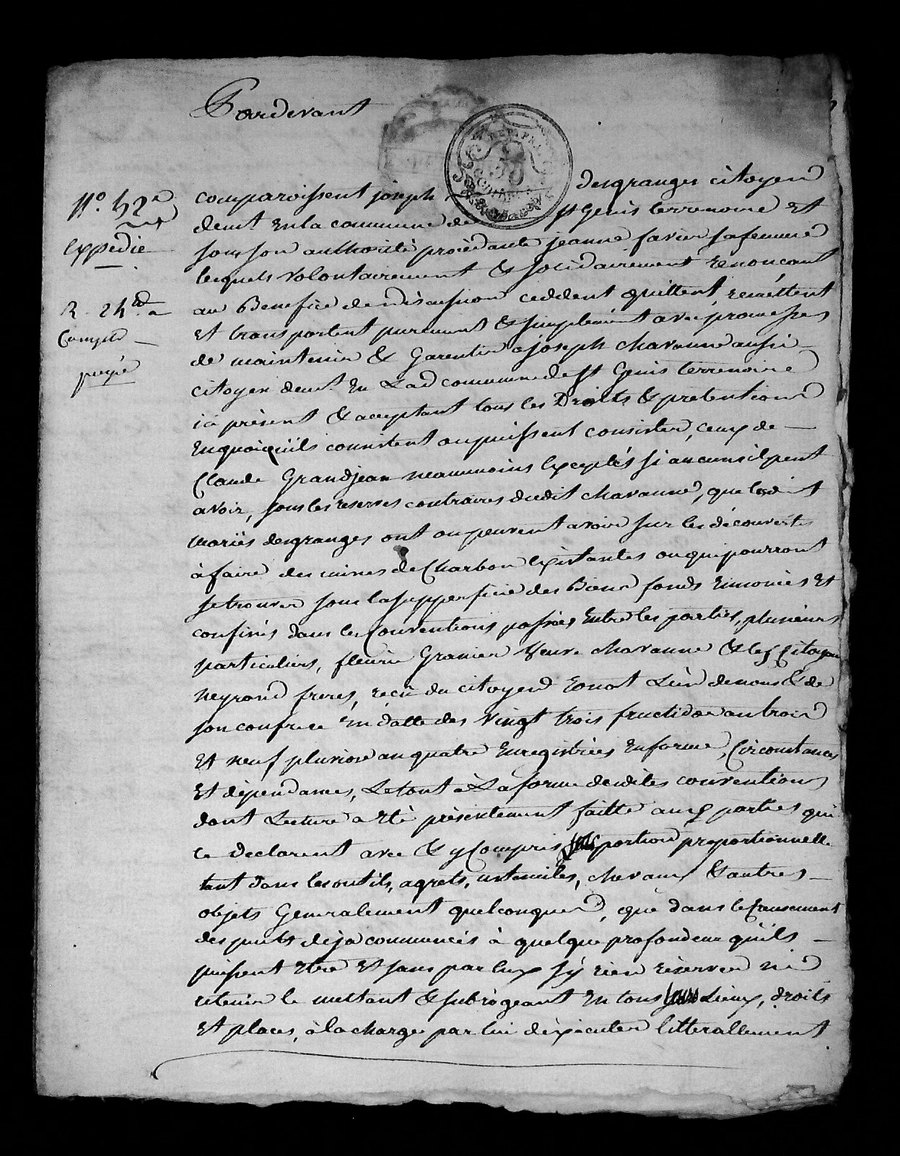 Pardevant
comparoissent joseph desgranges citoyen
demt En la commune de St Genis terrenoire Et
sous son authorité procédante jeanne favier sa femme
lesquels volontairement & solidairement renoncant
au Benefice de discussion ceddent quittent, remettent
Et transportent purement & simplement avec promesses
de maintenir & Garentir a joseph chavanne aussi
citoyen demt En Lad commune de St Genis terrenoire
ici présent & acceptant tous les Droits & pretentions
En quoi qu'ils consistent ou puissent consister, ceux de
Claude Grandjean neanmoins Exceptés si aucuns il peut
avoir, sous les reserves contraires dudit chavanne, que lesdits
mariés desgranges ont ou peuvent avoir sur les découvertes
à faire des mines de Charbon Existantes ou qui pourront
se trouver sous la supperficie des Biens fonds Enoncés Et
confinés dans les Conventions passées Entre les parties, plusieurs
particuliers, fleurie Granier Veuve chavanne & les Citoyens
neyrand freres, reçu du citoyen de nous & de
son confrere En datte des Vingt trois fructidor an trois
Et neuf pluviose an quatre Enregistrées En forme, Circonstances
Et dépendances, Le tout à La forme desdites conventions
dont Lecture a Eté présentement faitte aux parties qui
le declarent avec & y Compris leur portion proportionnelle
tant dans les outils, agrets, ustenciles, chevaux & autres
objets Generalement quelconques, que dans le Creusement
des puits deja commencés à quelque profondeur qu'ils
puissent Etre Et sans par Eux s'y rien réserver ni
retenir le mettant & subrogeant En tous leurs Lieux, droits
Et places, à la charge par lui d'exécuter litterallement
No. 52e
Expedié
Compté